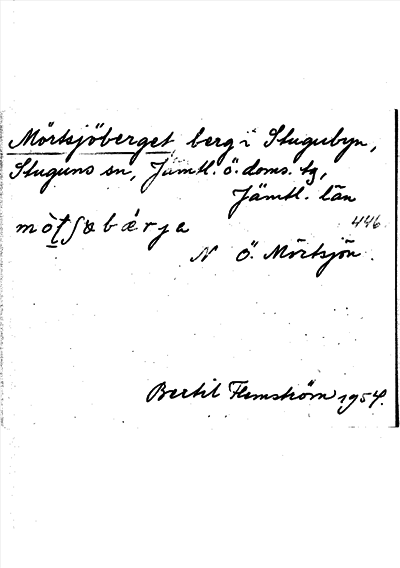 Mörtsjöberget, berg i Stugubyn,
Stuguns sn, Jämtl. ö. doms. tg,
Jämtl. län
446
N Ö. Mörtsjön.
Bertil Flemström 1954.